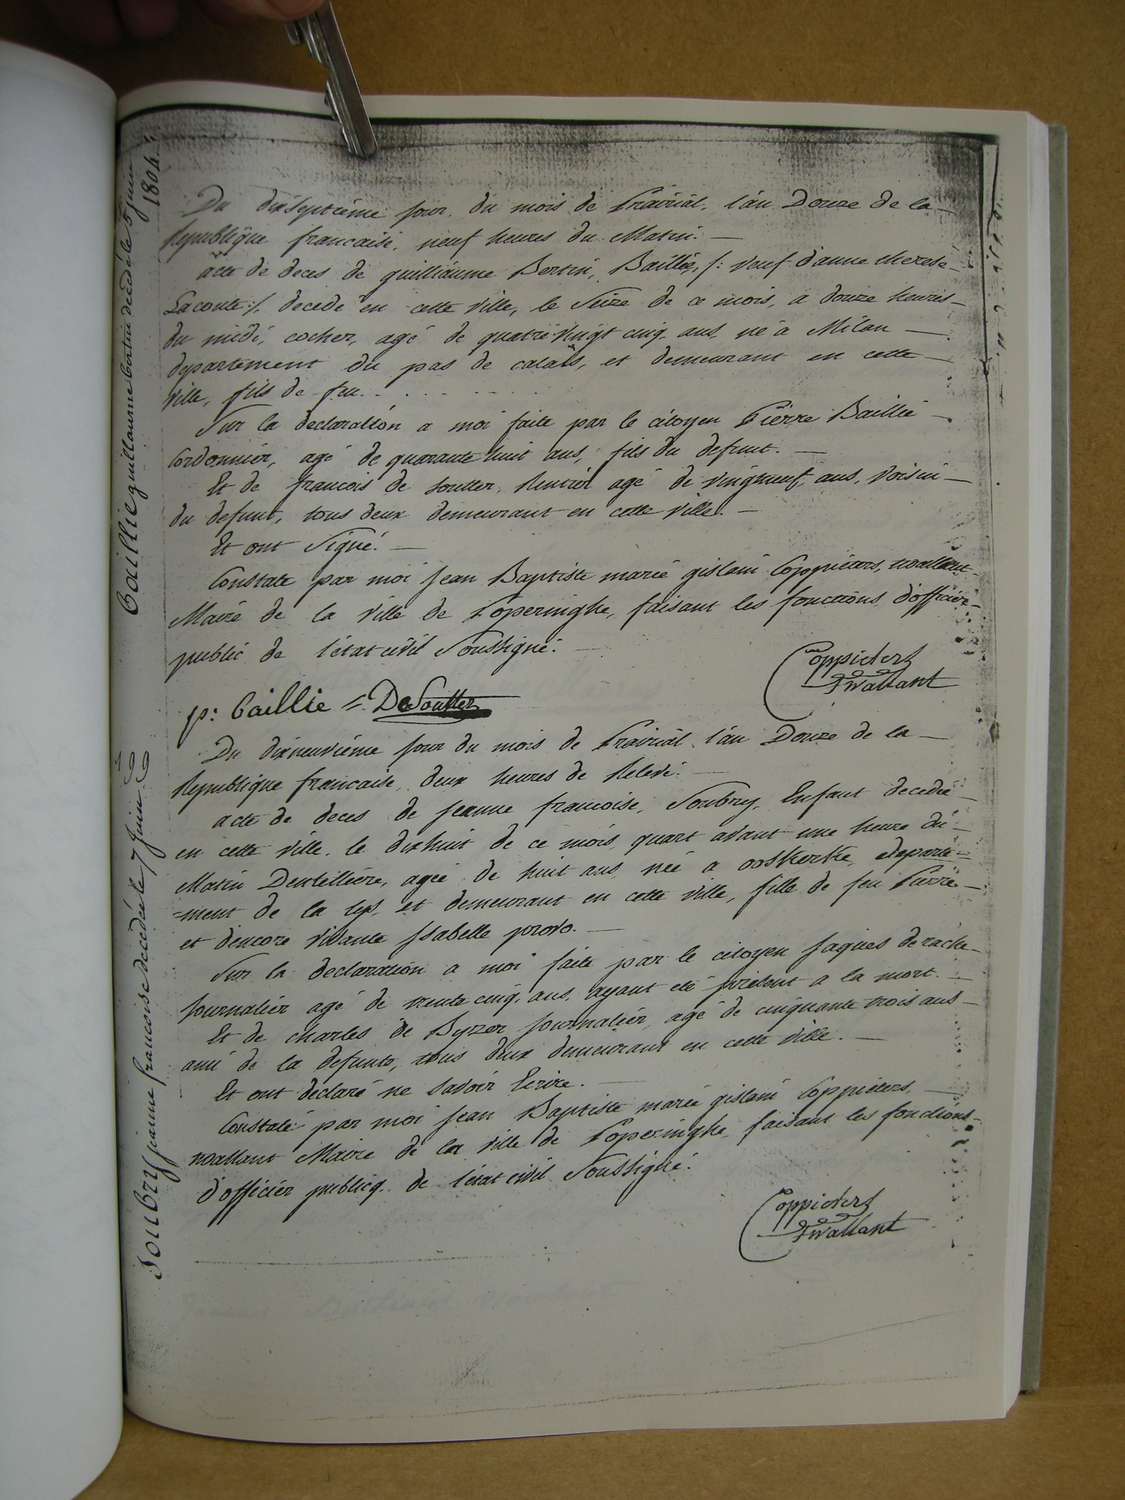 Baillie guillaume bertin decedé le 5 juin 1804.
Du dixseptiéme jour du mois de Prairial, l'an Douze de la
Republique francaise, neuf heures du Matin.
acte de deces de guilliaume Bertin, Baillie, /: veuf d'anne therese
Laconte :/ decedé en cette ville, le Seize de ce mois, a douze heures
du midi, cocher, agé de quatrevingt cinq ans, né à Milan
departement du pas de calais, et demeurant en cette
ville, fils de feu . . . . . . .
Sur la declaration a moi faite par le citoyen Pierre Baillie
Cordonnier, agé de quarante huit ans, fils du defunt.
Et de francois de soutter, Rentier agé de vingtneuf ans, Voisin
du defunt, tous deux demeurant en cette ville.
Et ont Signé.
Constaté par moi Jean Baptiste marie gislain Coppieters, wallant
Maire de la ville de Poperinghe, faisant les fonctions d'officier
public de l'état civil Soussigné.
Coppieters
wallant
p: baillie = DeSoutter
Soubry jeanne francoise decedée le 7 juin
Du dixneuviéme jour du mois de Prairial l'an Douze de la
Republique francaise, deux heures de Relevé.
acte de deces de jeanne francoise, Soubry, Enfant decedé
en cette ville, le dixhuit de ce mois, quart avant une heure du
Matin Dentelliére, agée de huit ans née a oostkerke, departe=
=ment de la Lys, et demeurant en cette ville, fille de feu Pierre
et d'encore vivante Isabelle provo.
Sur la declaration a moi faite par le citoyen Jaques deracke
Journalier agé de trente cinq ans, ayant été present a la mort.
Et de charles de Byzer Journalier, agé de cinquante trois ans
ami de la defunte, tous deux demeurant en cette ville.
Et ont declaré ne savoir Ecrire.
Constaté par moi Jean Baptiste marie gislain Coppieters
wallant Maire de la ville de Poperinghe faisant les fonctions
d'officier publicq de l'état civil Soussigné.
Coppieters
wallant